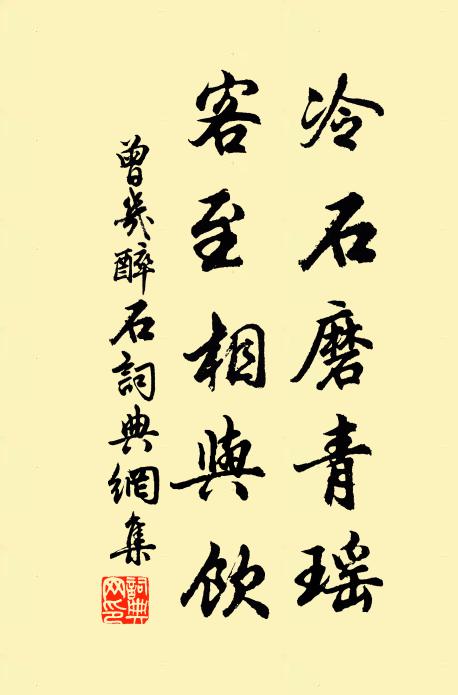 冷石磨青瑶
客至相與飲
曾幾醉石詞典網集
詞典網印